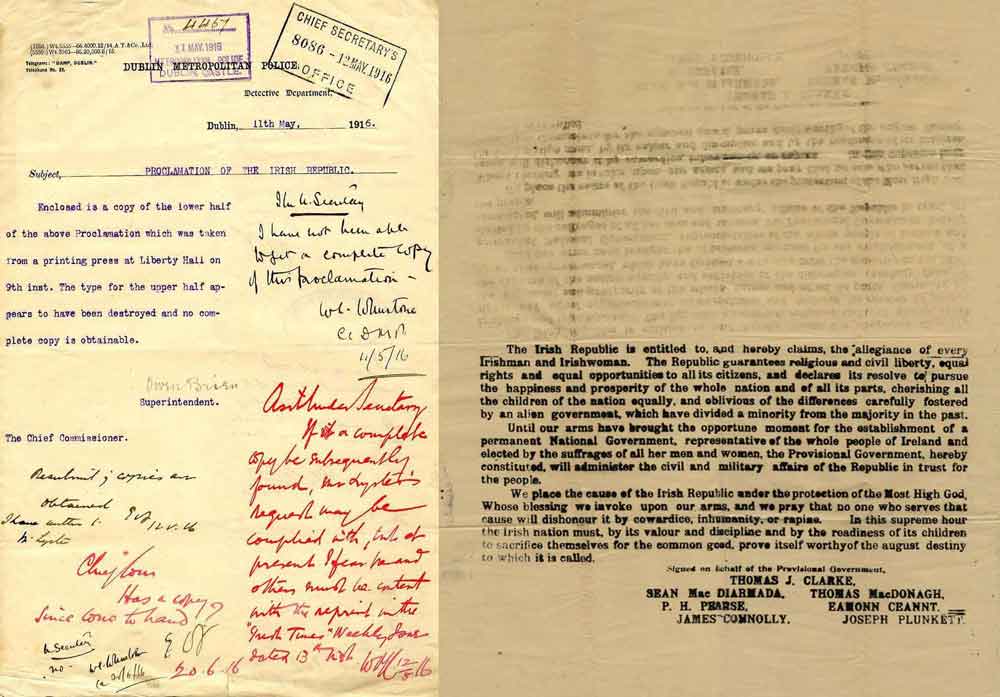 (1556.) Wt.5333—66.4000.12/14.A.T.&Co.,Ltd.
Telegrams: "DAMP, DUBLIN."
Telephone No. 22.
No. 4467
11 MAY. 1916
METROPOLITAN POLICE
DUBLIN CASTLE.
CHIEF SECRETARY'S
8086 - 12 MAY. 1916
OFFICE
DUBLIN METROPOLITAN POLICE
Detective Department,
Dublin, 11th May, 1916.
Subject, PROCLAMATION OF THE IRISH REPUBLIC.
Enclosed is a copy of the lower half
of the above Proclamation which was taken
from a printing press at Liberty Hall on
9th inst. The type for the upper half ap-
pears to have been destroyed and no com-
plete copy is obtainable.
Owen Brien
Superintendent.
The Chief Commissioner.
I have not been able
to get a complete copy
of this proclamation -
C. D.M.P.
11/5/16
Asst Under Secretary
If a complete
copy be subsequently
found, Mr Lyster's
request may be
complied with, but at
present I fear he and
others must be content
with the reprint in the
"Irish Times" Weekly Issue
dated 13th inst
12/5/16
Resubmit; copies
obtained
12.5.16
Chief Com
Has a copy
since come to hand?
20.6.16
The Irish Republic is entitled to, and hereby claims, the allegiance of every
Irishman and Irishwoman. The Republic guarantees religious and civil liberty, equal
rights and equal opportunities to all its citizens, and declares its resolve to pursue
the happiness and prosperity of the whole nation and of all its parts, cherishing all
the children of the nation equally, and oblivious of the differences carefully fostered
by an alien government, which have divided a minority from the majority in the past.
Until our arms have brought the opportune moment for the establishment of a
permanent National Government, representative of the whole people of Ireland and
elected by the suffrages of all her men and women, the Provisional Government, hereby
constituted, will administer the civil and military affairs of the Republic in trust for
the people.
We place the cause of the Irish Republic under the protection of the Most High God,
Whose blessing we invoke upon our arms, and we pray that no one who serves that
cause will dishonour it by cowardice, inhumanity, or rapine. In this supreme hour
the Irish nation must, by its valour and discipline and by the readiness of its children
to sacrifice themselves for the common good, prove itself worthy of the august destiny
to which it is called.
Signed on behalf of the Provisional Government,
THOMAS J. CLARKE,
SEAN Mac DIARMADA, THOMAS MacDONAGH,
P. H. PEARSE, EAMONN CEANNT,
JAMES CONNOLLY. JOSEPH PLUNKETT.